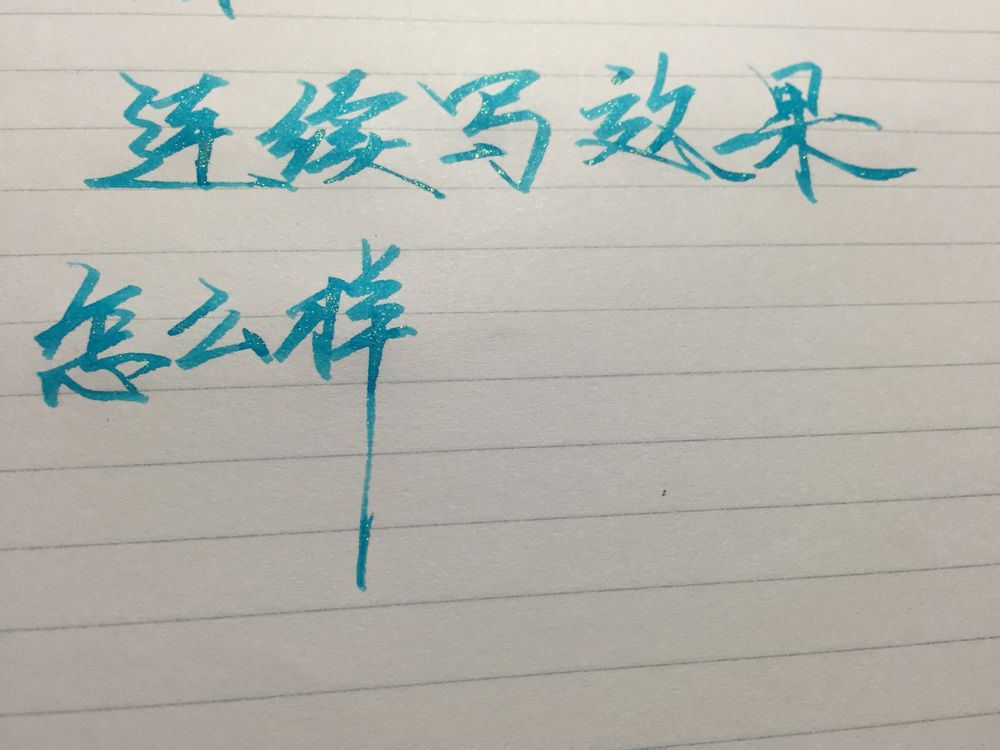 连续写效果
怎么样